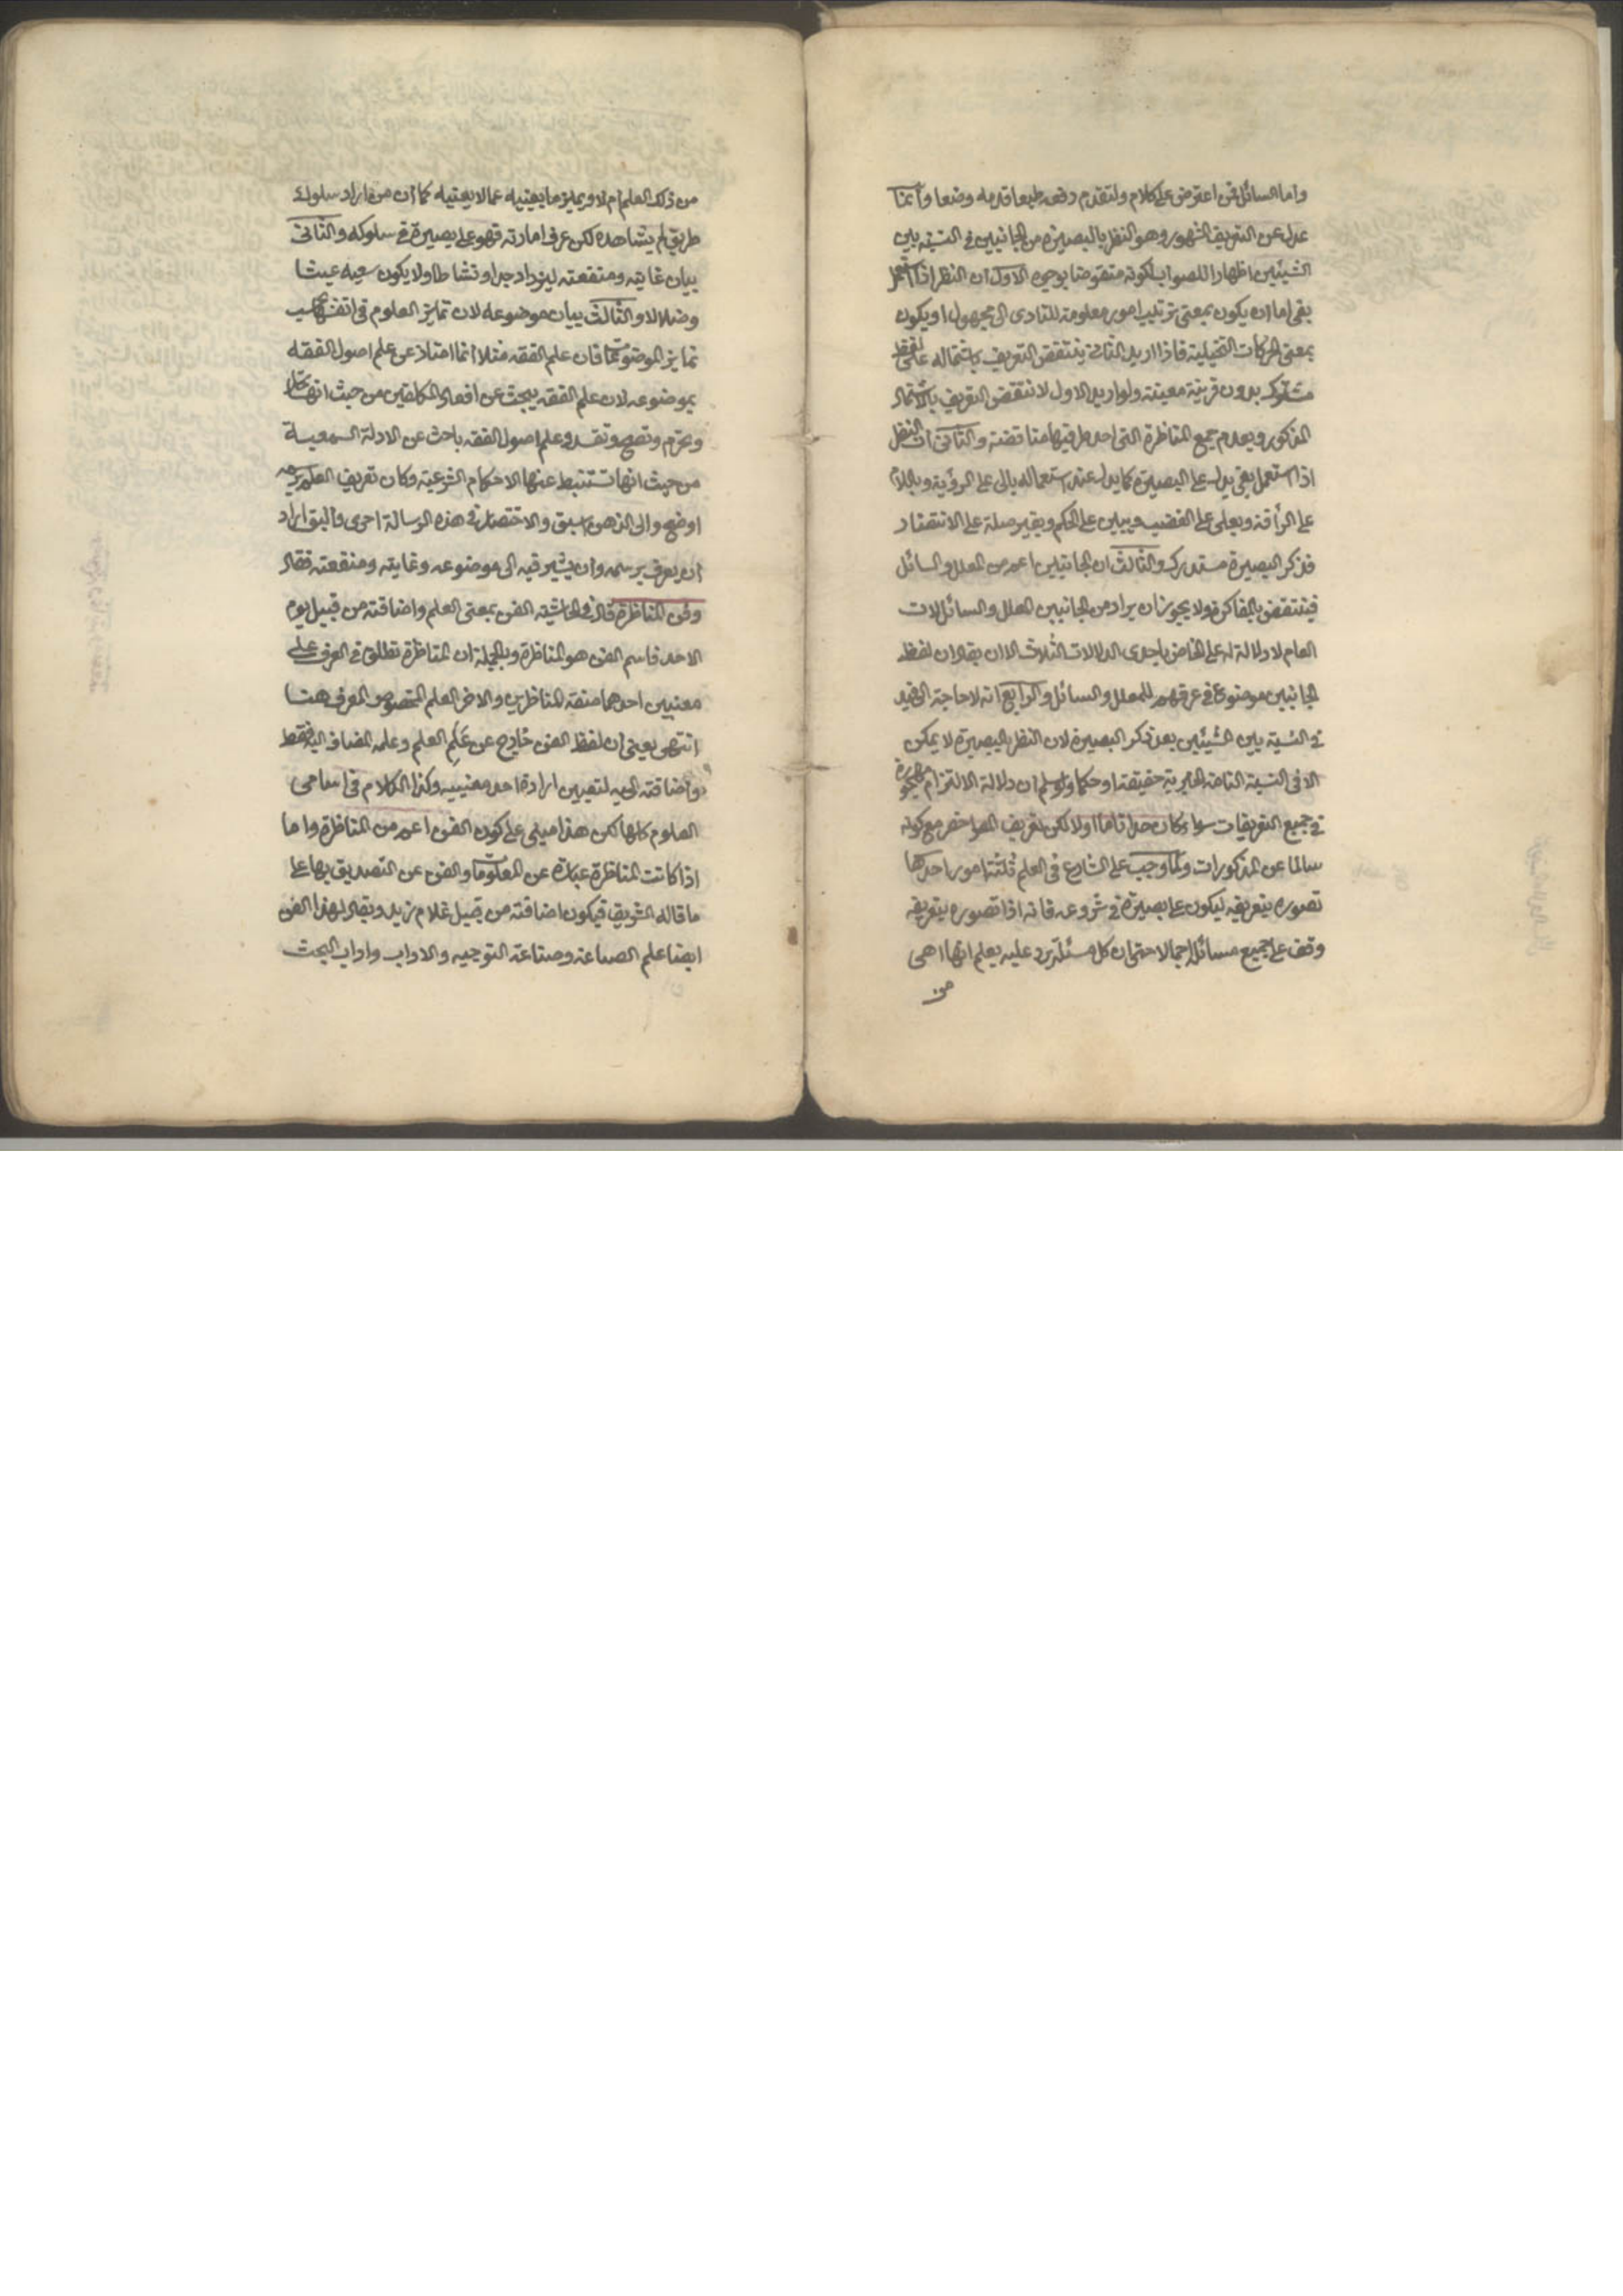 واما السائل فمن اعترض على كلام ولتقدم دفعه طبعا قدمه وضعا وانما
عدل عن التعريف المشهور وهو النظر بالبصيرة من الجانبين فى النسبة بين
الشيئين اظهارا للصواب لكونه منقوضا بوجوه الاول ان النظر اذا استعمل
بفى اما ان يكون بمعنى ترتيب امور معلومة للتادى الى مجهول او يكون
بمعنى الحركات التخيلية فاذا اريد الثانى ينتقض التعريف باشتماله على لفظ
مشترك بدون قرينة معينة ولو اريد الاول لانتقض التعريف بالاشتمال
المذكور وبعدم جمع المناظرة التى احد طرفيها مناقضة والثانى ان النظر
اذا استعمل بفى يدل على البصيرة كما يدل عند استعماله بالى على الرؤية وباللام
على الرأفة وبعلى على الغضب وببين على الحكم وبغير صلة على الانتظار
فذكر البصيرة مستدرك والثالث ان الجانبين اعم من المعلل والسائل
فينتقض بالمفاكرة ولا يجوز ان يراد من الجانبين المعلل والسائل لان
العام لا دلالة له على الخاص باحدى الدلالات الثلاث الا ان يقال ان لفظ
الجانبين موضوع فى عرفهم للمعلل والسائل والرابع انه لا حاجة الى قيد
فى النسبة بين الشيئين بعد ذكر البصيرة لان النظر بالبصيرة لا يمكن
الا فى النسبة التامة الخبرية حقيقة او حكما ولو سلم ان دلالة الالتزام مهجورة
فى جميع التعريفات سواء كان حدا تاما او لا لكن تعريف المص اخصر مع كونه
سالما عن المذكورات ولما وجب على الشارع فى العلم ثلثة امور احدها
تصوره بتعريفه ليكون على بصيرة فى شروعه فانه اذا تصوره بتعريفه
وقف على جميع مسائله اجمالا حتى ان كل مسئلة يرد عليه يعلم انها اهى
من
من ذلك العلم ام لا ويميز ما يعنيه عما لا يعنيه كما ان من اراد سلوك
طريق لم يشاهده لكن عرف امارته فهو على بصيرة فى سلوكه والثانى
بيان غايته ومنفعته ليزداد جدا ونشاطا ولا يكون سعيه عبثا
وضلالا والثالث بيان موضوعه لان تمايز العلوم فى انفسها بحسب
تمايز الموضوعات فان علم الفقه مثلا انما امتاز عن علم اصول الفقه
بموضوعه لان علم الفقه يبحث عن افعال المكلفين من حيث انها تحل
وتحرم وتصح وتفسد وعلم اصول الفقه باحث عن الادلة السمعية
من حيث انها تستنبط عنها الاحكام الشرعية وكان تعريف العلم برسمه
اوضح والى الذهن اسبق والاختصار فى هذه الرسالة احرى واليق اراد
ان يعرف برسمه وان يشير فيه الى موضوعه وغايته ومنفعته فقال
وفن المناظرة قال فى الحاشية الفن بمعنى العلم واضافته من قبيل يوم
الاحد فاسم الفن هو المناظرة وبالجملة ان المناظرة تطلق فى العرف على
معنيين احدهما صفة المناظرين والاخر العلم المخصوص المعرف ههنا
انتهى يعنى ان لفظ الفن خارج عن علم العلم وعلمه المضاف اليه فقط
واضافته اليه لتعيين ارادة احد معنييه وكذا الكلام فى اسامى
العلوم كلها لكن هذا مبنى على كون الفن اعم من المناظرة واما
اذا كانت المناظرة عبارة عن المعلومات والفن عن التصديق بها على
ما قاله الشريف فيكون اضافته من قبيل غلام زيد ويقال لهذا الفن
ايضا علم الصناعة وصناعة التوجيه والاداب واداب البحث